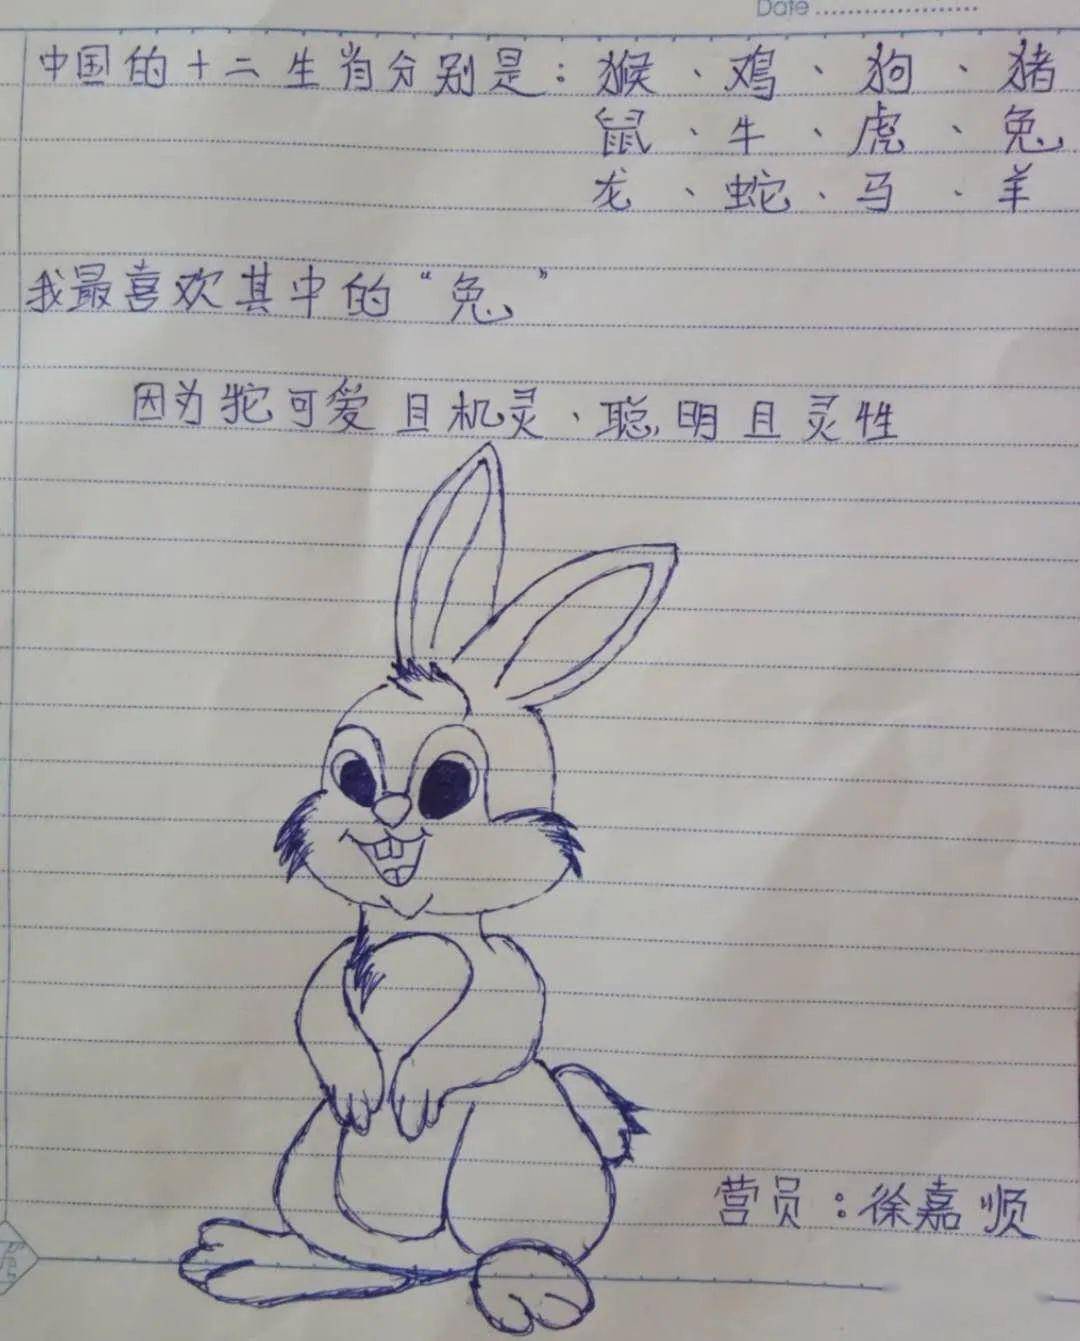 Date
中国的十二生肖分别是：猴、鸡、狗、猪
鼠、牛、虎、兔
龙、蛇、马、羊
我最喜欢其中的“兔”
因为它可爱且机灵、聪明且灵性
营员：徐嘉顺